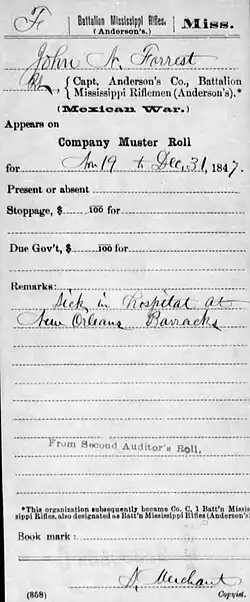 F
Battalion Mississippi Rifles.
(Anderson's).
Miss.
John N. Forrest
Pvt, { Capt. Anderson's Co., Battalion
Mississippi Riflemen (Anderson's).*
(Mexican War.)
Appears on
Company Muster Roll
for Nov 19 to Dec. 31, 1847.
Present or absent
Stoppage, $ 100 for
Due Gov't, $ 100 for
Remarks:
Sick in Hospital at
New Orleans Barracks
From Second Auditor's Roll.
*This organization subsequently became Co. C, 1 Batt'n Missis
sippi Rifles, also designated as Batt'n Mississippi Rifles (Anderson's
Book mark:
Merchant
(858)
Copyist.